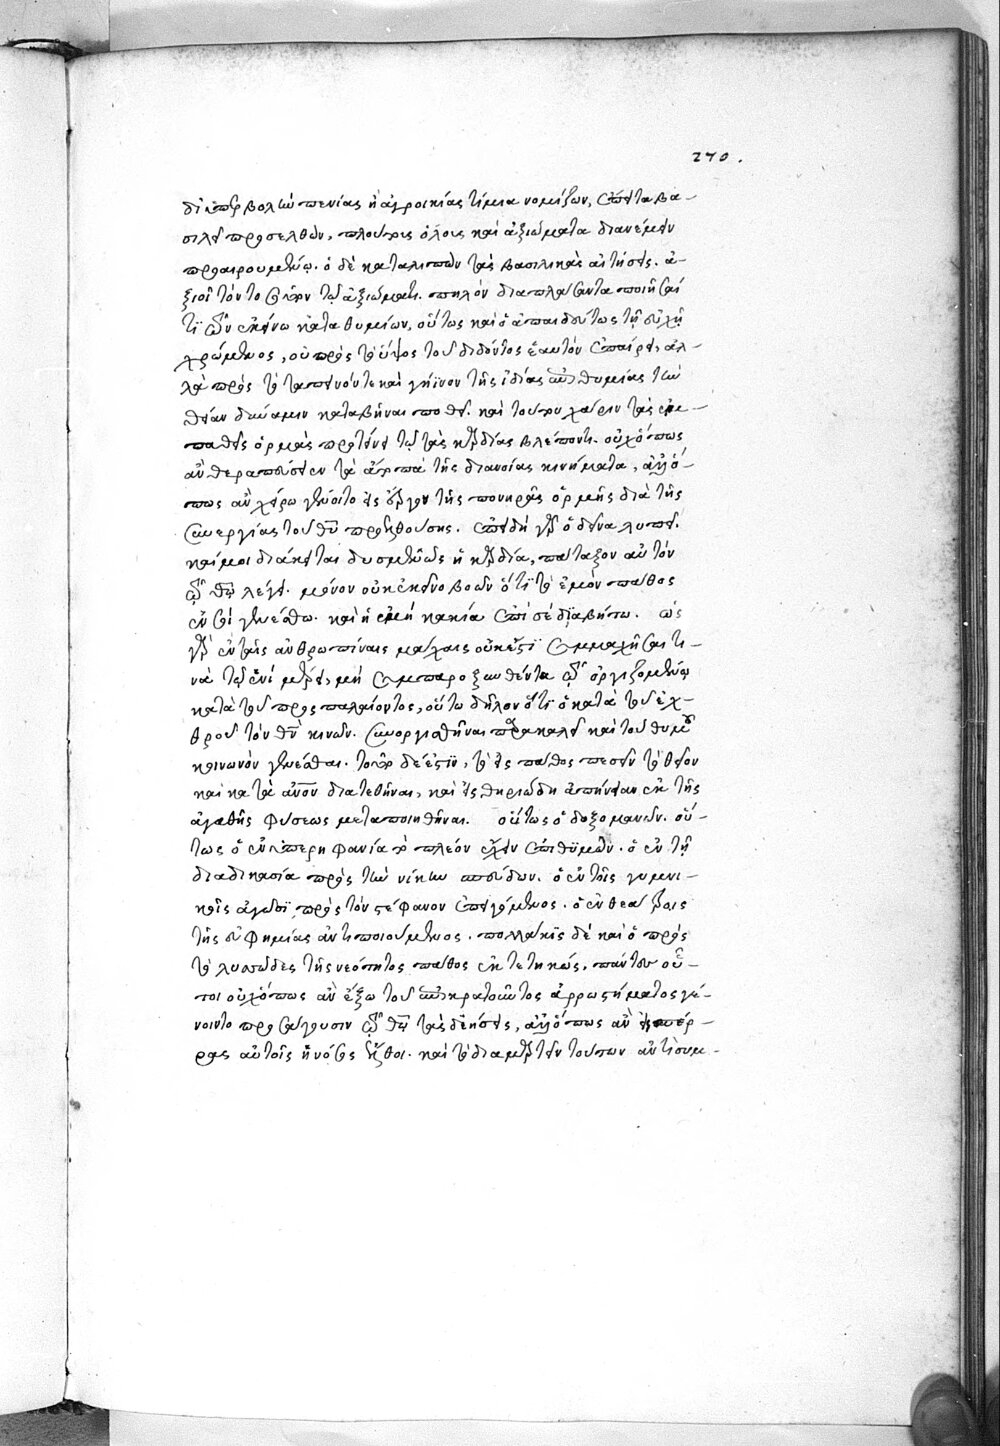 270.
δι' ὑπερβολὴν πενίας ἢ ἀγροικίας τίμια νομίζων, ἔπειτα βα-
σιλεῖ προσελθὼν, πλούτοις ὅλοις καὶ ἀξιώματα διανέμειν
προαιρουμένῳ. ὁ δὲ καταλιπὼν τὰς βασιλικὰς αἰτήσεις. ἀ-
ξιοῖ τὸν τοσοῦτον τῷ ἀξιώματι. πηλὸν διαπλάσαντα ποιῆσαί
τι τῶν ἐκείνω καταθυμίων, οὕτως καὶ ὁ ἀπαιδεύτως τῇ εὐχῇ
χρώμενος, οὐ πρὸς τὸ ὕψος τοῦ διδόντος ἑαυτὸν ἐπαίρει, ἀλ-
λὰ πρὸς τὸ ταπεινόν τε καὶ γήϊνον τῆς ἰδίας ἐπιθυμίας τὴν
θείαν δύναμιν καταβῆναι ποθεῖ. καὶ τούτου χάριν τὰς ἐμ-
παθεῖς ὁρμὰς προτείνει τῷ τὰς καρδίας βλέποντι. οὐχ ὅπως
ἂν θεραπεύσειεν τὰ ἄτοπα τῆς διανοίας κινήματα, ἀλλ' ὅ-
πως ἂν χείρω γένοιτο εἰς ἔργον τῆς πονηρᾶς ὁρμῆς διὰ τῆς
συνεργίας τοῦ θῦ προελθούσης. ἐπειδὴ γὰρ ὁ δεῖνα λυπεῖ.
καί μοι διάκειται δυσμενῶς ἡ καρδία, πάταξον αὐτὸν
τῷ θῷ λέγει. μόνον οὐκ ἐκεῖνο βοῶν ὅτι τὸ ἐμὸν πάθος
ἐν σοὶ γενέσθω. καὶ ἡ ἐμὴ κακία ἐπὶ σὲ διαβήτω. ὡς
γὰρ ἐν ταῖς ἀνθρωπίναις μάχαις οὐκ ἔστι συμμαχῆσαί τι-
νὰ τῷ ἑνὶ μέρει, μὴ συμπαροξυνθέντα τῷ ὀργιζομένῳ
κατὰ τοῦ προσπαλαίοντος, οὕτω δῆλον ὅτι ὁ κατὰ τοῦ ἐχ-
θροῦ τὸν θν κινῶν. συνοργισθῆναι παρακαλεῖ καὶ τοῦ θυμοῦ
κοινωνὸν γενέσθαι. τοῦτο δέ ἐστιν, τὸ εἰς πάθος πεσεῖν τὸ θεῖον
καὶ κατὰ ἄνον διατεθῆναι, καὶ εἰς θηριώδη ἀπήνειαν ἐκ τῆς
ἀγαθῆς φύσεως μεταποιηθῆναι. οὕτως ὁ δοξομανῶν. οὕ-
τως ὁ ἐν ὑπερηφανία τὸ πλέον ἔχειν ἐπιθυμῶν. ὁ ἐν τῇ
διαδικασία πρὸς τὴν νίκην σπεύδων. ὁ ἐν τοῖς γυμνι-
κοῖς ἀγῶσι πρὸς τὸν στέφανον ἐπειγόμενος. ὁ ἐν θεάτροις
τῆς εὐφημίας ἀντιποιούμενος. πολλάκις δὲ καὶ ὁ πρὸς
τὸ λυσσῶδες τῆς νεότητος πάθος ἐκτετηκώς. πάντες οὗ-
τοι οὐχ ὅπως ἂν ἔξω τοῦ ἐπικρατοῦντος ἀρρωστήματος γέ-
νοιντο προσάγουσιν τῷ θῷ τὰς δεήσεις, ἀλλ' ὅπως ἂν εἰς πέρ-
ρας αὐτοῖς ἡ νόσος ἔλθοι. καὶ τὸ διαμαρτεῖν τούτων ἀντὶ συμ-